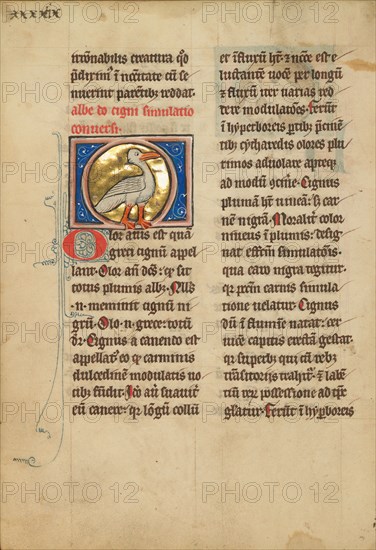 xxxix
irronabilis creatura qd
pdixim' i nccitate cu se
nuerint parentib; reddat.
albe do cigni simulatio
conuersi.
Olor auis est qua
greci cignum appel
lant. Olor au dcs: q sit
totus plumis alb;. Null'
n meminit cignum ni
grum. Olo. n. grece: totum
dr. Cignus a canendo est
appellat' eo q carminis
dulcedinem modulatis uo
cib; fundit. Ido au suauit'
eu canere: qr longum collu
et iflexum ht. z ncce est e
luctante uoce per longu
z flexum iter uarias red
dere modulatoes. ferut
i hyperboreis ptib; pcinen
tib; cytharedis olores plu
rimos aduolare apteq
ad modu Cignus
plumam ht niueam. s; car
nem nigra. Moralit' color
niueus i plumis: desig
nat effem simulatois.
qua caro nigra tegitur.
qr pctm carnis simula
tione uelatur. Cignus
du i flumine natat: cer
uice capitis erecta gestat.
qr superb; qui cu reb;
tnsitoriis trahit'. z labe
tiu rer possessione ad tps
gl'atur. ferut i hyperboreis
PHOTO 12